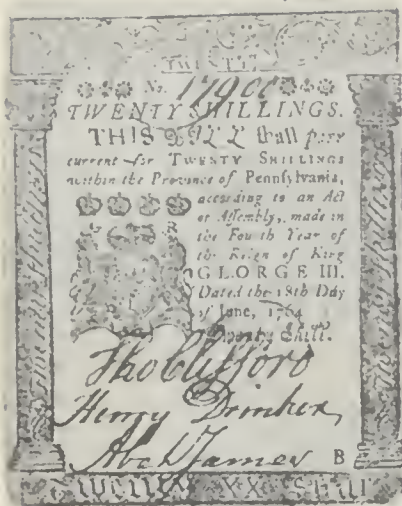 TWENTY
No. 17900
TWENTY SHILLINGS.
THIS BILL shall pass
current for TWENTY SHILLINGS
within the Province of Pennſylvania,
according to an Act
of Aſſembly, made in
the Fourth Year of
the Reign of King
GEORGE III.
Dated the 18th Day
of June, 1764
Twenty Shill.
Tho Clifford
Henry Drinker,
Abel James
B